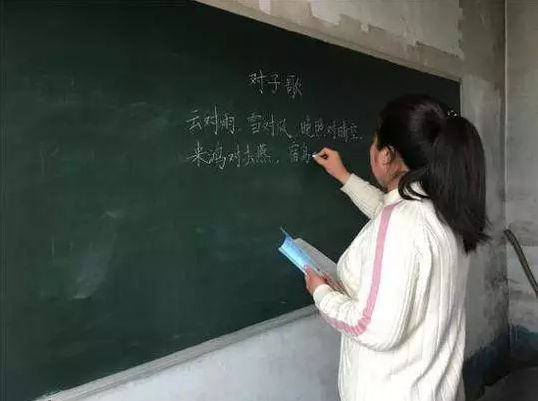 对子歌
云对雨,雪对风,晚照对晴空,
来鸿对去燕,宿鸟